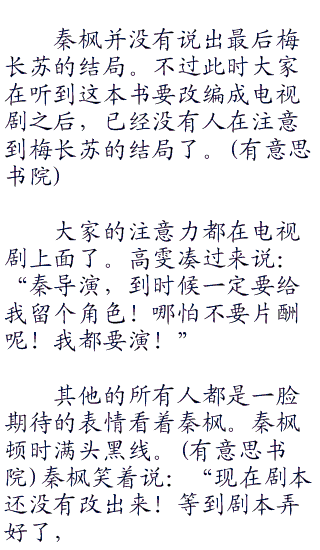 秦枫并没有说出最后梅
长苏的结局。不过此时大家
在听到这本书要改编成电视
剧之后，已经没有人在注意
到梅长苏的结局了。(有意思
书院)
大家的注意力都在电视
剧上面了。高雯凑过来说：
“秦导演，到时候一定要给
我留个角色！哪怕不要片酬
呢！我都要演！”
其他的所有人都是一脸
期待的表情看着秦枫。秦枫
顿时满头黑线。(有意思书
院)秦枫笑着说：“现在剧本
还没有改出来！等到剧本弄
好了，